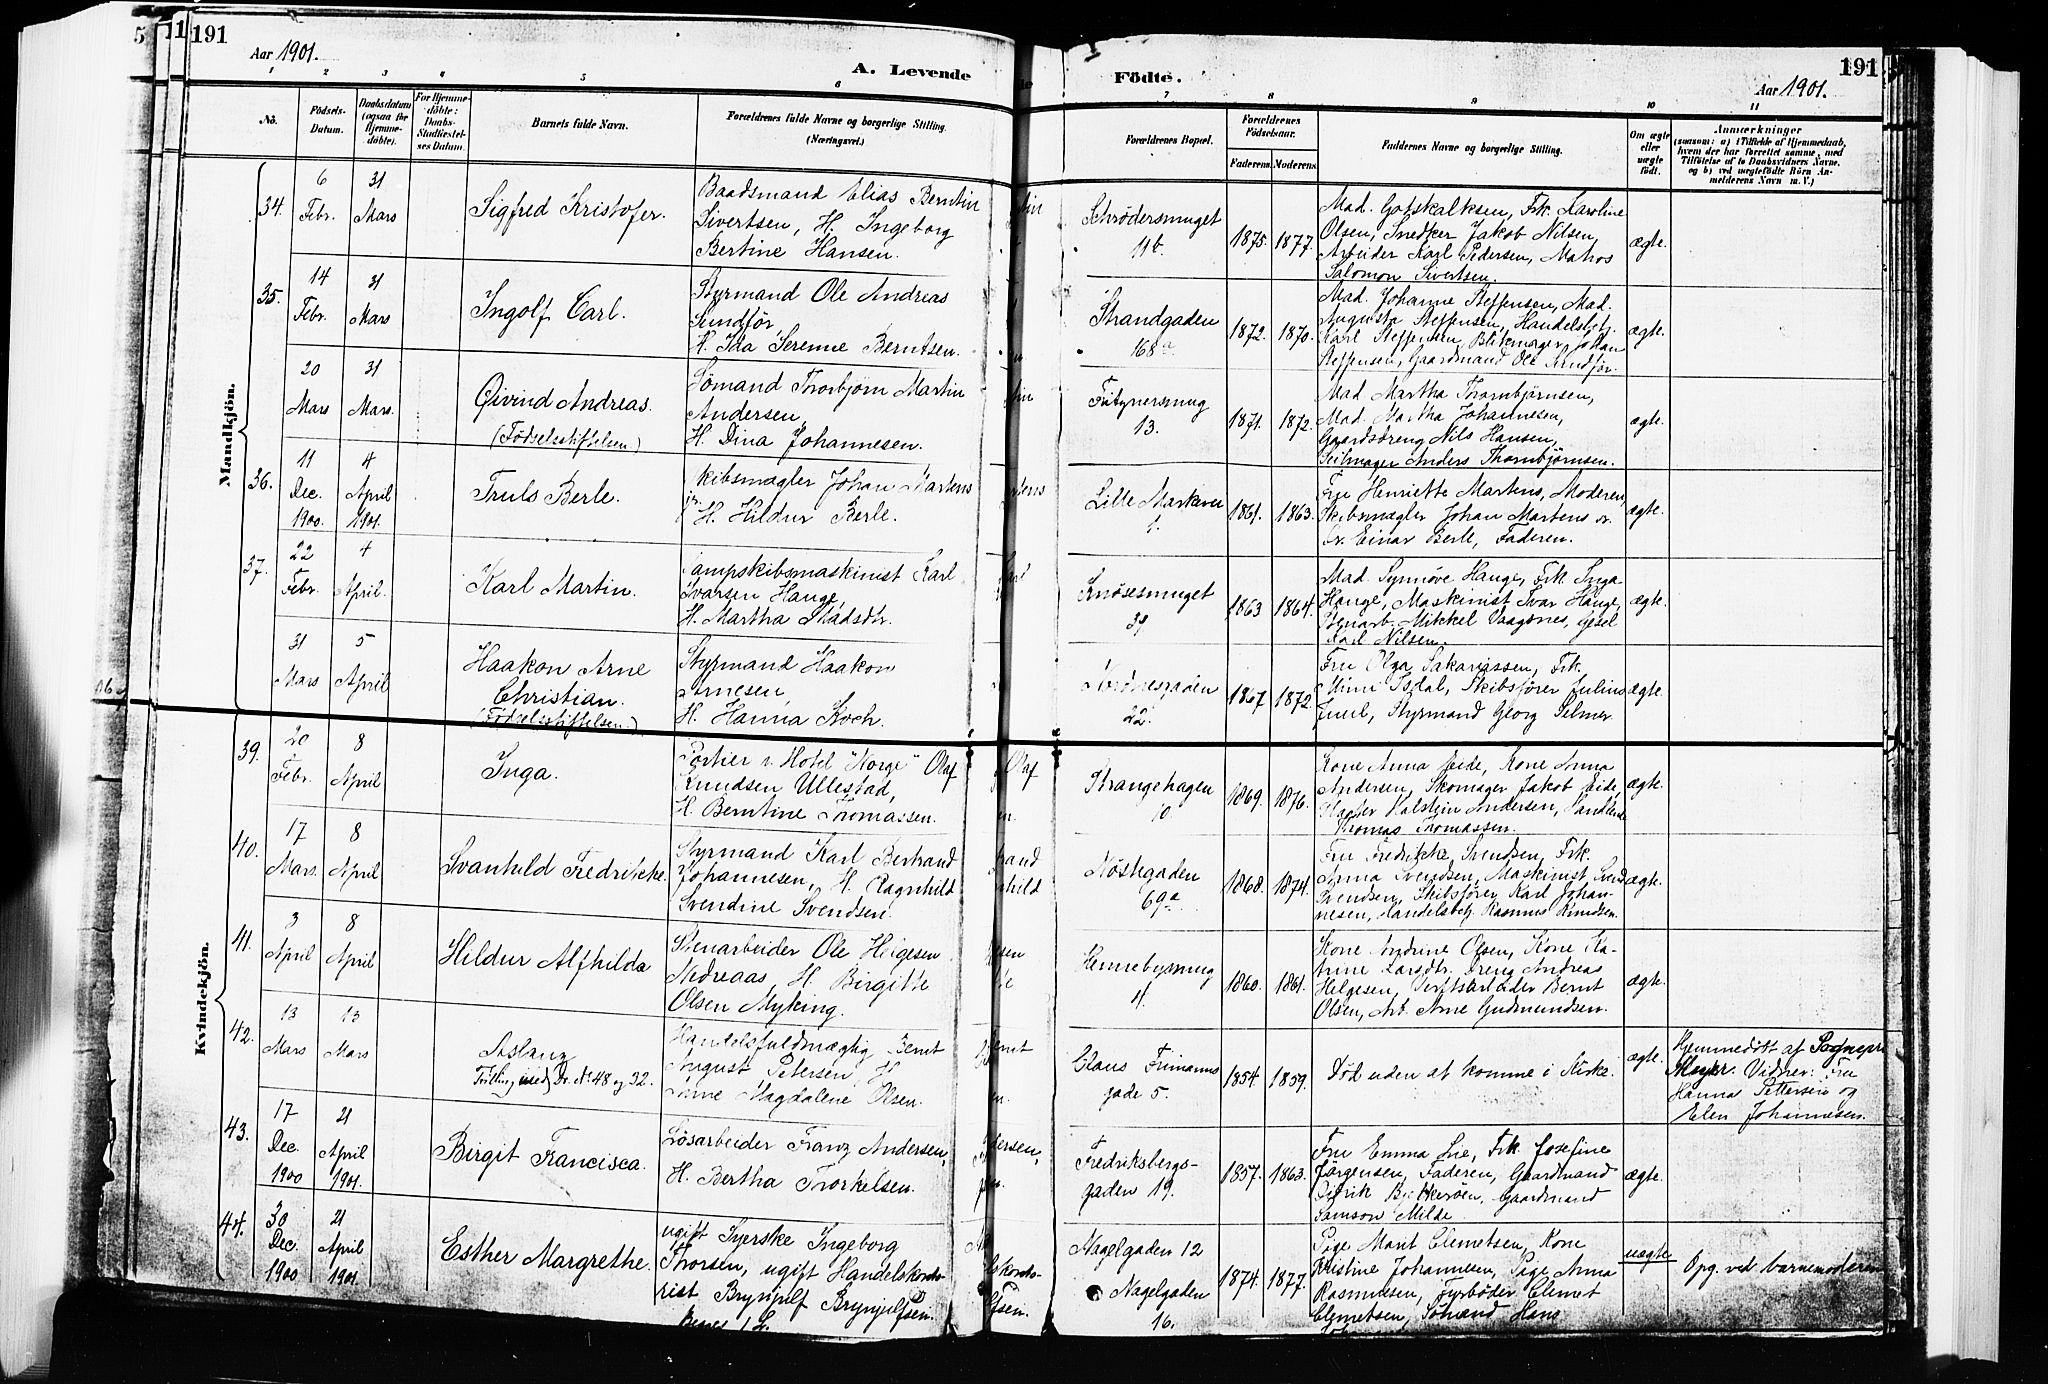 191
Aar 1901.
A. Levende
Födte.
191
Aar 1901.
1 2 3 4 5 6 7 8 9 10 11
No.
Födsels-Datum.
Daabsdatum (ogsaa for Hjemmedöbte).
For Hjemmedöbte: Daabs-Stadfæstelses Datum.
Barnets fulde Navn.
Forældrenes fulde Navne og borgerlige Stilling. (Næringsvei.)
Forældrenes Bopæl.
Forældrenes Födselsaar.
Faderens. Moderens.
Faddernes Navne og borgerlige Stilling.
Om ægte eller uægte födt.
Anmærkninger
(saasom: a) i Tilfælde af Hjemmedaab, hvem der har forrettet samme, med Tilföielse af to Daabsvidners Navne. og b) ved uægtefödte Börn Anmelderens Navn m. V.)
Mandkjön.
34.
6 Febr.
31 Mars
Sigfred Kristofer.
Baadsmand Elias Berntin
Sivertsen, H. Ingeborg
Bertine Hansen.
Schrödersmuget
11b.
1875. 1877.
Mad. Gotskalksen, Frk. Karoline
Olsen, Snedker Jakob Nilsen,
Arbeider Karl Pedersen, Matros
Salomon Sivertsen.
ægte.
35.
14 Febr.
31 Mars
Ingolf Carl.
Styrmand Ole Andreas
Sundför,
H. Ida Serenne Berntsen.
Strandgaden
168a.
1872. 1870.
Mad. Johanne Steffensen, Mad.
Augusta Steffensen, Handelsbtj.
Karl Steffensen, Blikmager Johan
Steffensen, Gaardmand Ole Sundför.
ægte.
20 Mars
31 Mars.
Øivind Andreas.
(Födselsstiftelsen)
Sömand Thorbjörn Martin
Andersen,
H. Dina Johannesen.
13.
1871. 1872.
Mad Martha Thornbjörnsen,
Mad. Martha Johannesen,
Gaardsdreng Nils Hansen,
Seilmager Anders Thornbjörnsen.
ægte.
36.
11 Dec. 1900.
4 April 1901.
Truls Berle.
Skibsmægler Johan Martens
jr. H. Hildur Berle.
Lille Markevei
1.
1861. 1863.
Fru Henriette Martens, Moderen,
Skibsmægler Johan Martens sr.
Dr. Einar Berle, Faderen.
ægte.
37.
22 Febr.
4 April.
Karl Martin.
Dampskibsmaskinist Karl
Ivarsen Hauge,
H. Martha Madsdtr.
Knösesmuget
39
1863 1864.
Mad. Synnöve Hauge, Frk. Inga
Hauge, Maskinist Ivar Hauge,
Stenarb. Mikkel Vaagsnes,
Karl Nilsen.
ægte.
31 Mars
5 April
Haakon Arne
Christian.
(Födselsstiftelsen.)
Styrmand Haakon
Arnesen,
H. Hanna Koch.
Nordnesgaden
22.
1867 1872.
Fru Olga Sakariassen, Frk.
Mimi Isdal, Skibsförer Julius
Juul, Styrmand Georg Selmer.
ægte.
Kvindekjön.
39.
20 Febr.
8 April
Inga.
Portier v. Hotel "Norge" Olaf
Knudsen Ullestad,
H. Berntine Thomassen.
Strangehagen
10.
1869. 1876.
Kone Anna Eide, Kone Anna
Andersen, Skomager Jakob Eide,
Holstein Andersen,
Thomas Thomassen.
ægte.
40.
17 Mars.
8 April
Svanhild Fredrikke.
Styrmand Karl Bertrand
Johannesen, H. Ragnhild
Svendine Svendsen.
Nöstegaden
69a.
1868. 1874.
Fru Fredrikke Svendsen, Frk.
Anna Svendsen, Maskinist Svend
Svendsen, Skibsförer Karl Johan-
nesen, Handelsbtj. Rasmus Knudsen.
ægte.
41.
3 April
8 April
Hildur Alfhilda
Stenarbeider Ole Helgesen
Nedreaas H. Birgitte
Olsen Myking.
Hennebysmug
4.
1860. 1861.
Kone Andrine Olsen, Kone Ka-
trine Larsdtr. Dreng Andreas
Helgesen, Verftsarbeider Bernt
Olsen, Arb. Arne Gudmundsen.
ægte.
42.
13 Mars
13 Mars
Aslaug
Trilling med Dr. No 48 og 32.
Handelsfuldmægtig Bernt
August Petersen, H.
Anne Magdalene Olsen.
Claus Frimanns
gade 5.
1854. 1859.
Död uden at komme i Kirke.
ægte.
Hjemmedöbt af Sognepr.
Meyer. Vidner: Fru
Hanna Pettersen og
Elen Johannesen.
43.
17 Dec. 1900
21 April 1901.
Birgit Francisca.
Lösarbeider Franz Andersen,
H. Bertha Thorkelsen.
Fredriksbergs-
gaden 19.
1857. 1863.
Fru Emma Lie, Frk Josefine
Jörgensen, Faderen, Gaardmand
Didrik Gaardmand
Samson Milde.
ægte.
44.
30 Dec. 1900
21 April 1901.
Esther Margrethe.
ugift Syerske Ingeborg
Thorsen, ugift Handelskonto-
rist Brynjulf Brynjulfsen.
Nagelgaden 12
Nagelgaden
16.
1874. 1877.
Pige Marit Clemetsen, Kone
Kristine Johannesen, Pige Anna
Rasmussen, Fyrböder Clemet
Clemetsen, Sömand Hans
uægte
Opg. ved barnemoderen